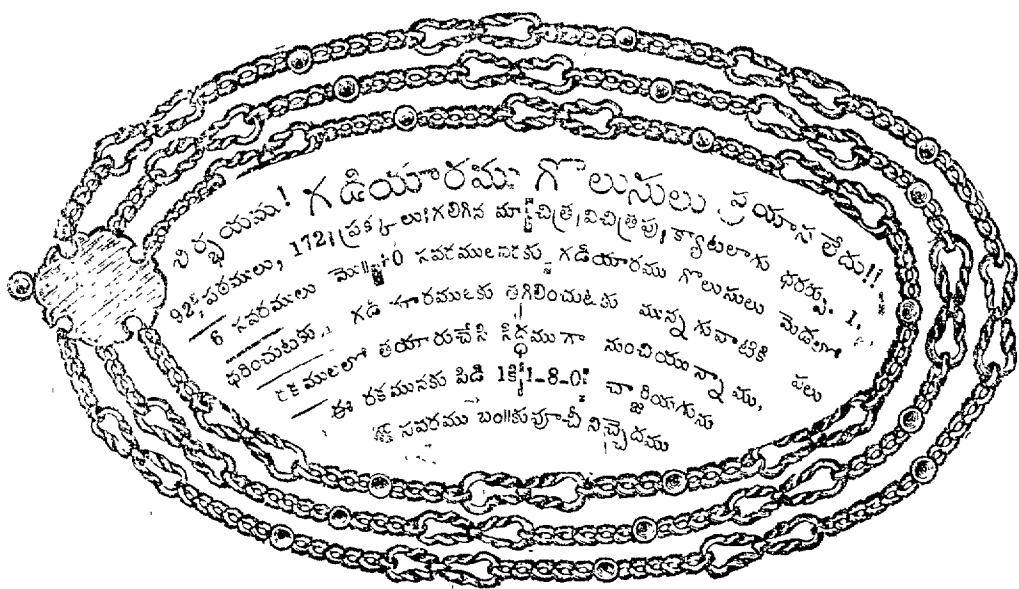 నిర్భయము! గడియారము గొలుసులు ప్రయాస లేదు!!
92, పఠములు, 172 ప్రక్కలు గలిగిన మా చిత్ర విచిత్రపు క్యాటలాగు ధరకు. 1,
6 సవరములు సవరములవరకు గడియారము గొలుసులు మెడలో
ధరించుటకు, గడియారములకు తగిలించుటకు మున్నగువాటికి పలు
రకములలో తయారుచేసి సిద్ధముగా నుంచియున్నాము,
ఈ రకమునకు పిడి 1కి 1-8-0 చ్ఛార్జియగును
సవరము బం॥కుపూచీ నిచ్చెదము